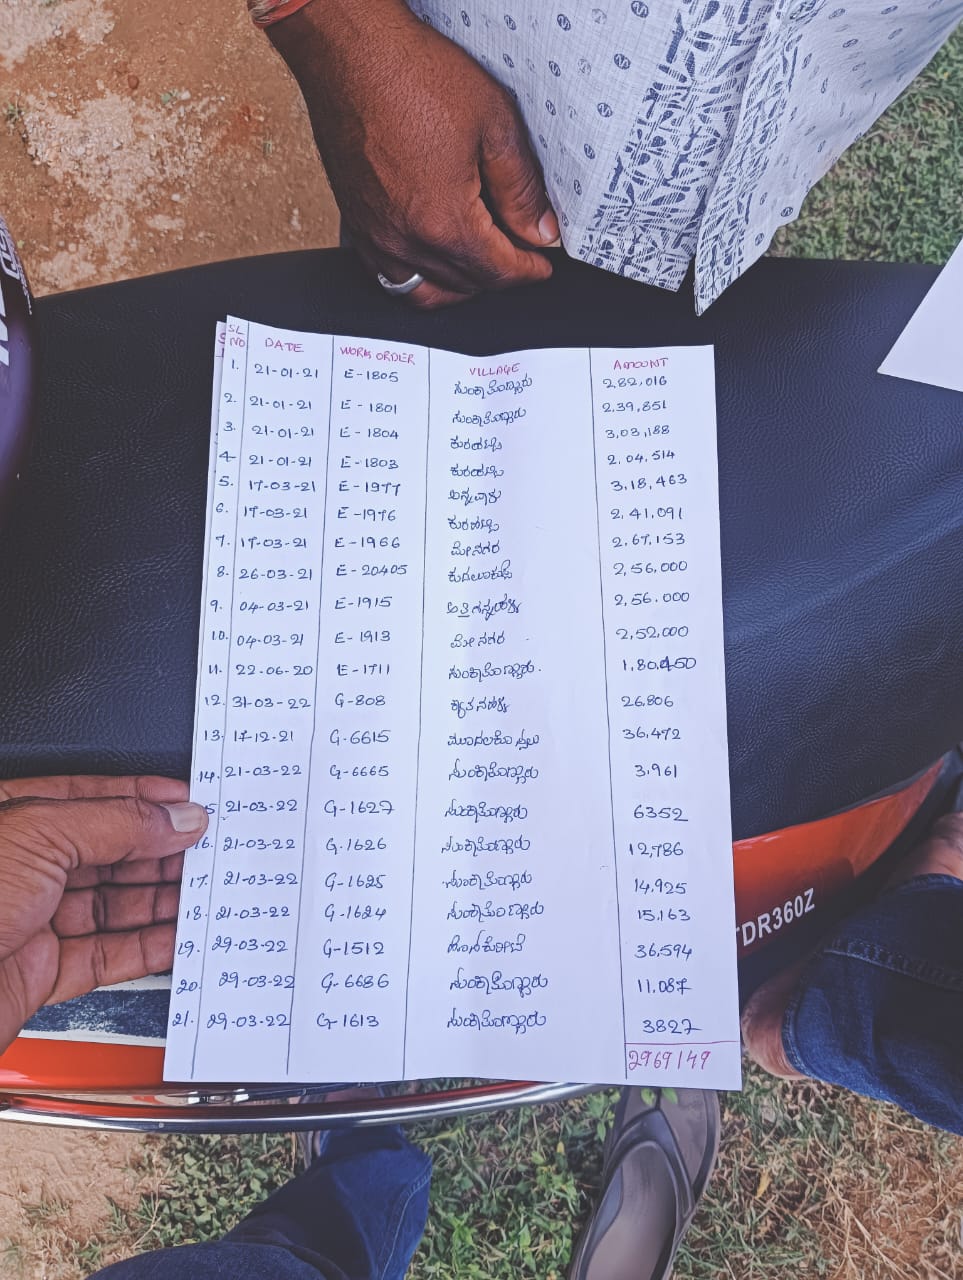 SL NO DATE WORK ORDER VILLAGE AMOUNT
1. 21-01-21 E-1805 ಸುಂಕಾತೊಣ್ಣೂರು 2,82,016
2. 21-01-21 E-1801 ಸುಂಕಾತೊಣ್ಣೂರು 2,39,851
3. 21-01-21 E-1804 ಕುರಹಟ್ಟಿ 3,03,188
4- 21-01-21 E-1803 ಕುರಹಟ್ಟಿ 2,04,514
5. 17-03-21 E-1977 3,18,463
6. 17-03-21 E-1976 ಕುರಹಟ್ಟಿ 2,41,091
7. 17-03-21 E-1966 ಮೇನಗರ 2,67,153
8. 26-03-21 E-20405 2,56,000
9. 04-03-21 E-1915 2,56,000
10. 04-03-21 E-1913 ಮೇನಗರ 2,52,000
11. 22-06-20 E-1711 ಸುಂಕಾತೊಣ್ಣೂರು. 1,80,450
12. 31-03-22 G-808 ಕ್ಯಾತನಹಳ್ಳಿ 26,806
13. 17-12-21 G-6615 36,472
14. 21-03-22 G-6665 ಸುಂಕಾತೊಣ್ಣೂರು 3,961
5 21-03-22 G-1627 ಸುಂಕಾತೊಣ್ಣೂರು 6352
16. 21-03-22 G-1626 ಸುಂಕಾತೊಣ್ಣೂರು 12,786
17. 21-03-22 G-1625 ಸುಂಕಾತೊಣ್ಣೂರು 14,925
18. 21-03-22 G-1624 ಸುಂಕಾತೊಣ್ಣೂರು 15,163
19. 29-03-22 G-1512 36,594
20. 29-03-22 G-6686 ಸುಂಕಾತೊಣ್ಣೂರು 11,087
21. 29-03-22 G-1613 ಸುಂಕಾತೊಣ್ಣೂರು 3827
2969149
TDR360Z